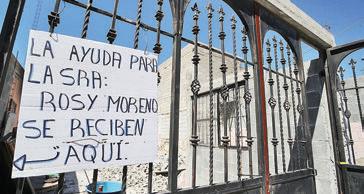 LA AYUDA PARA
LA SRA:
ROSY MORENO
SE RECIBEN
AQUÍ.